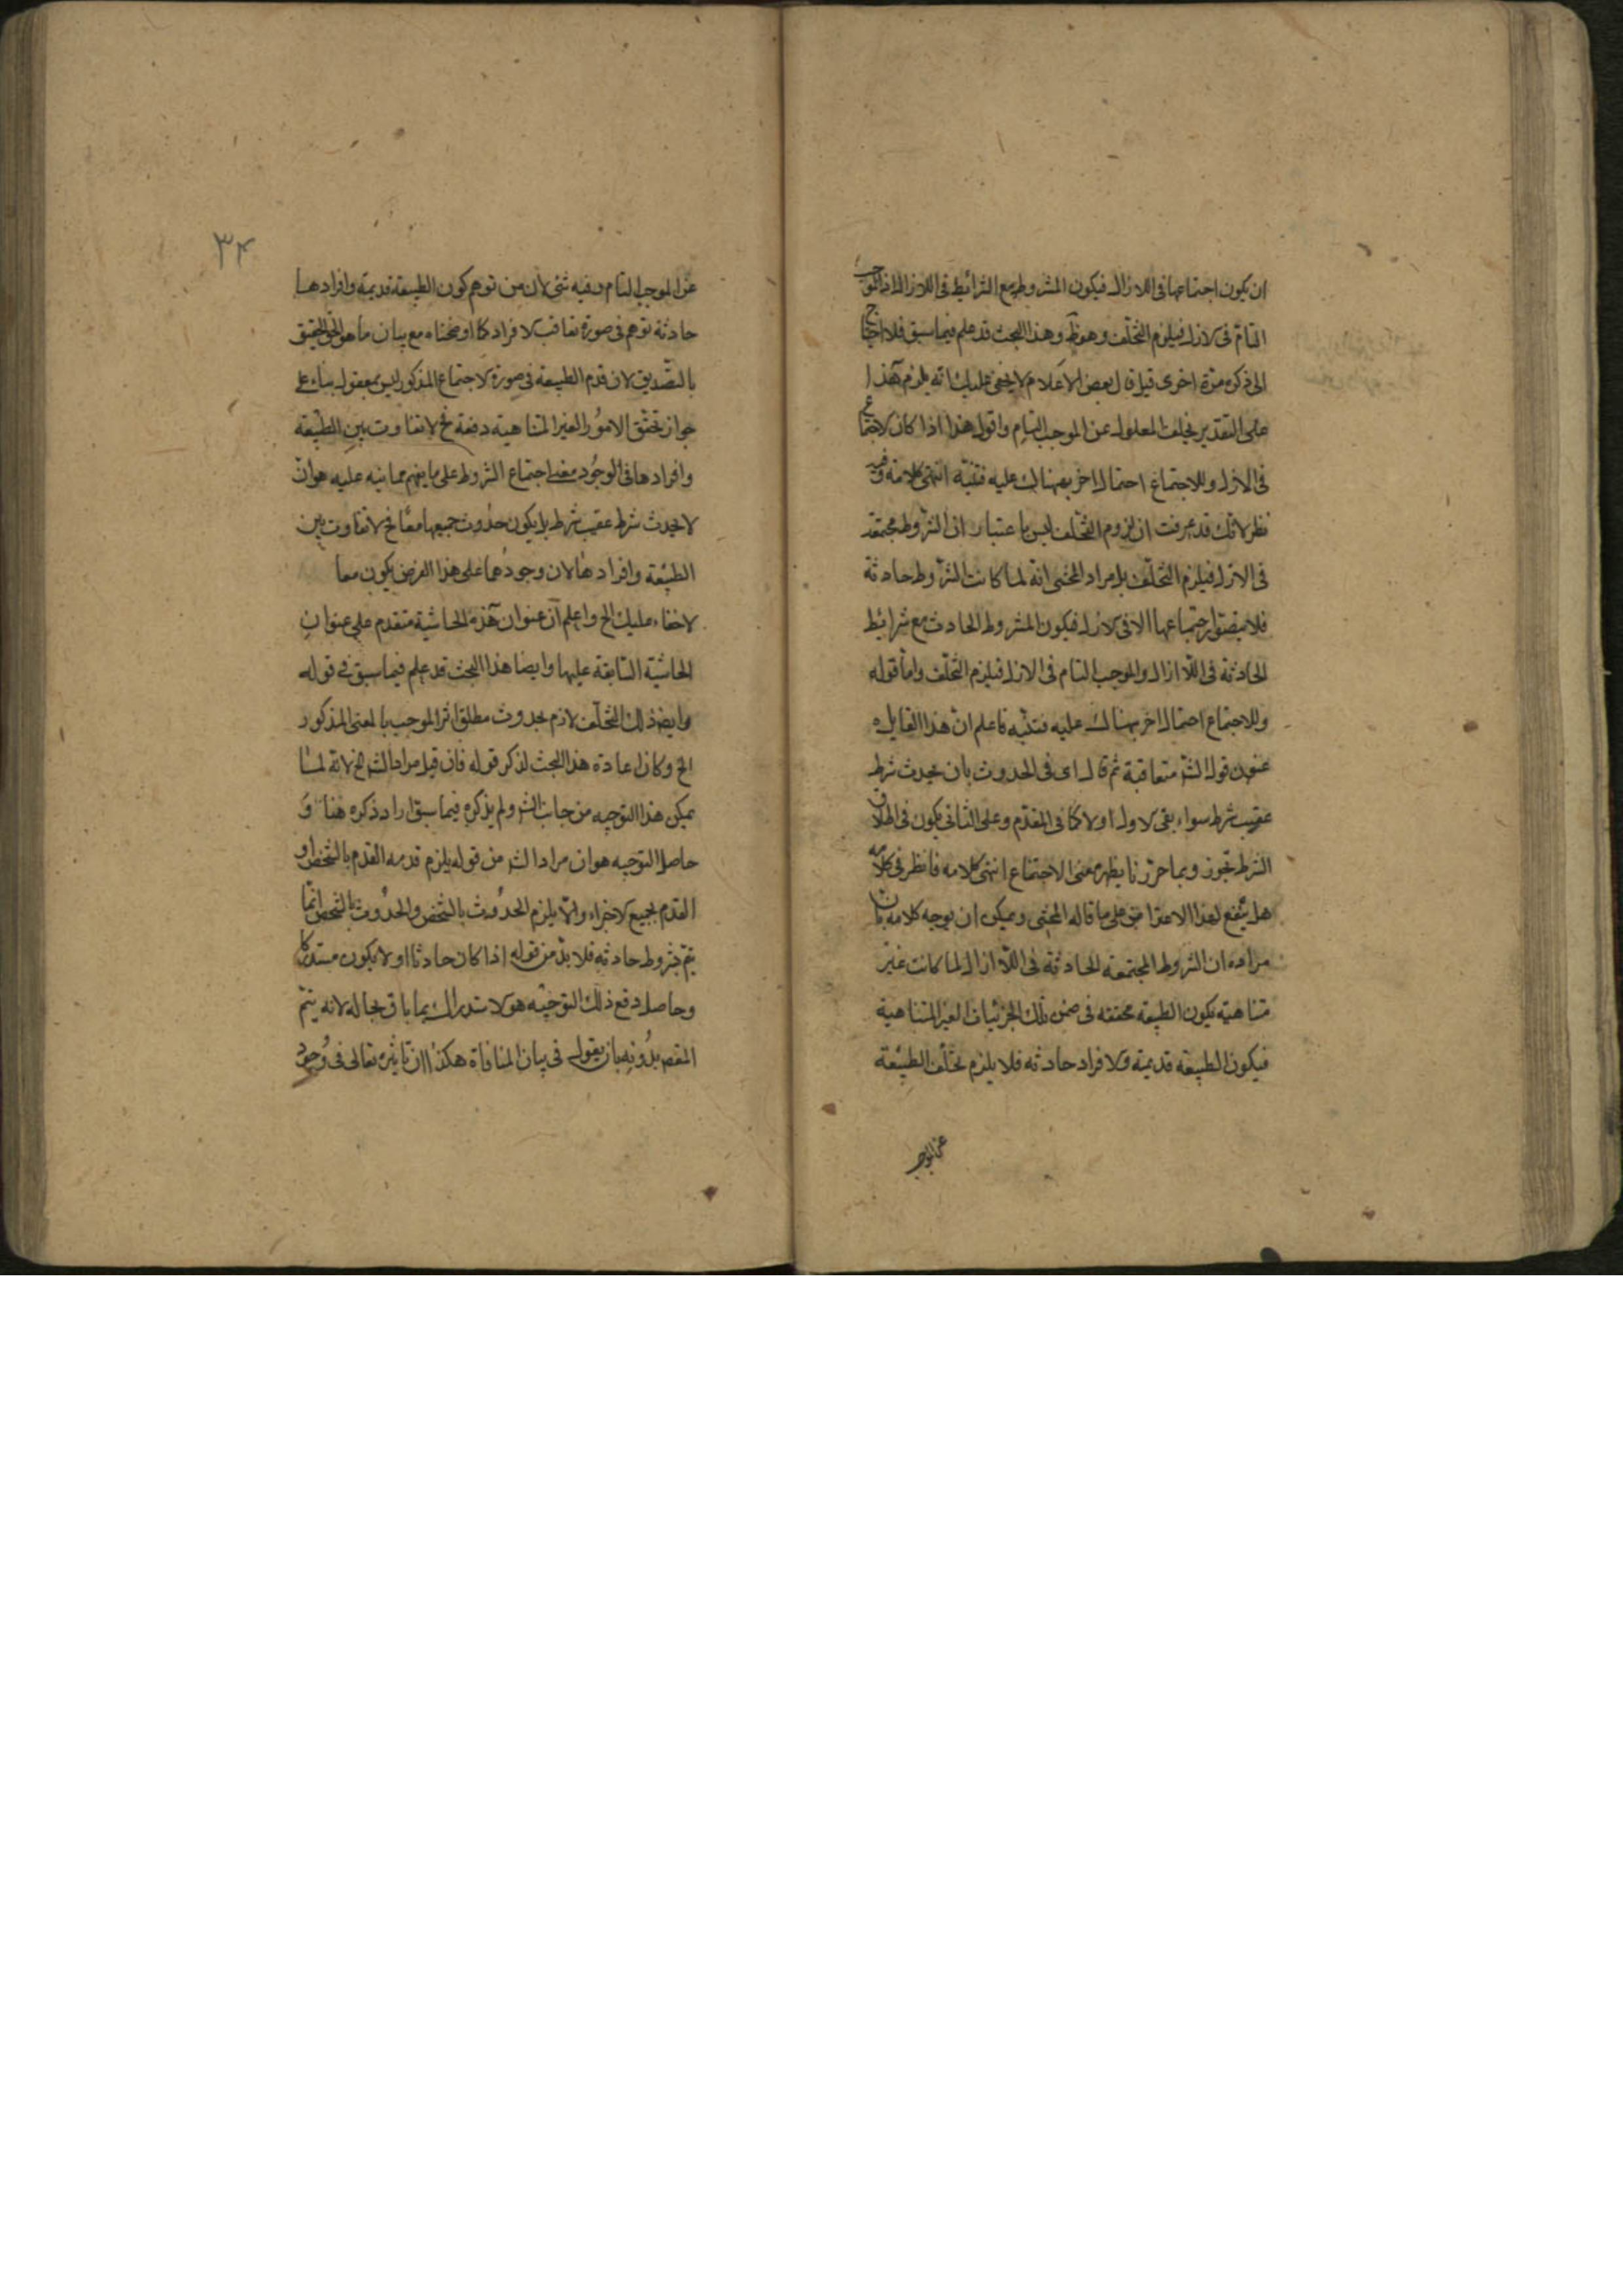 ان يكون اجتماعها فى اللازال فيكون المشروط مع الشرائط فى اللازال اذ الموجب
التام فى الازل فيلزم التخلف وهو ظ وهذا البحث قد علم فيما سبق فلا احتياج
الى ذكره مرة اخرى قيل قال بعض الاعلام لا يخفى عليك انه يلزم هذا
على التقدير تخلف المعلول عن الموجب التام واقول هذا اذا كان الاجتماع
فى الازل وللاجتماع احتمال اخر نبهناك عليه فتنبه انتهى كلامه وفيه
نظر لانك قد عرفت ان لزوم التخلف ليس باعتبار ان الشروط مجتمعة
فى الازل فيلزم التخلف بل مراد المحشى انه لما كانت الشروط حادثة
فلا يتصور اجتماعها الا فى لازال فيكون المشروط الحادث مع شرائط
الحادثة فى اللاازال والموجب التام فى الازل فيلزم التخلف واما قوله
وللاجتماع احتمال اخر نبهناك عليه فتنبه فاعلم ان هذا القايل
عنون قول الش متعاقبة ثم قال اى فى الحدوث بان يحدث شرط
عقيب شرط سواء بقى الاول او لا كما فى المقدم وعلى الثانى يكون فى اطلاق
الشرط تجوز وبما حررنا يظهر معنى الاجتماع انتهى كلامه فانظر فى كلامه
هل ينفع لهذا الاعتراض على ما قاله المحشى ويمكن ان يوجه كلامه بان
مراده ان الشروط المجتمعة الحادثة فى اللاازال لما كانت غير
متناهية يكون الطبيعة محققة فى ضمن تلك الجزئيات الغير المتناهية
فيكون الطبيعة قديمة والافراد حادثة فلا يلزم تخلف الطبيعة
عن الموجب
٣٤
عن الموجب التام وفيه شئ لان من توهم كون الطبيعة قديمة وافرادها
حادثة توهم فى صورة تعاقب الافراد كما اوضحناه مع بيان ما هو الحق الحقيق
بالتصديق لان قدم الطبيعة فى صورة الاجتماع المذكور ليس بمعقول بناء على
جواز تحقق الامور الغير المتناهية دفعة فح لا تفاوت بين الطبيعة
وافرادها فى الوجود معنى اجتماع الشروط على ما يفهم مما نبه عليه هو ان
لا يحدث شرط عقيب شرط بل يكون حدوث جميعها معا فح لا تفاوت بين
الطبيعة وافرادها لان وجودهما على هذا الفرض يكون معا
لاخفاء عليك الخ واعلم ان عنوان هذه الحاشية متقدم على عنوان
الحاشية السابقة عليها وايضا هذا البحث قد علم فيما سبق فى قوله
وايضا ذلك التخلف لازم بحدوث مطلق اثر الموجب بالمعنى المذكور
الخ وكان اعادة هذا البحث لذكر قوله فان قيل مراد الش الخ لانه لما
يمكن هذا التوجيه من جانب الش ولم يذكره فيما سبق اراد ذكره هنا و
حاصل التوجيه هو ان مراد الش من قوله يلزم قدمه القدم بالشخص او
القدم بجميع الاجزاء والا يلزم الحدوث بالشخص والحدوث بالشخص انما
يتم بشروط حادثة فلا بد من قوله اذا كان حادثا او لا يكون مستدركا
وحاصل دفع ذلك التوجيه هو الاستدراك بما باق بحاله لانه يتم
المقص بدونه بان يقول فى بيان المنافاة هكذا ان تاثيره تعالى فى وجود